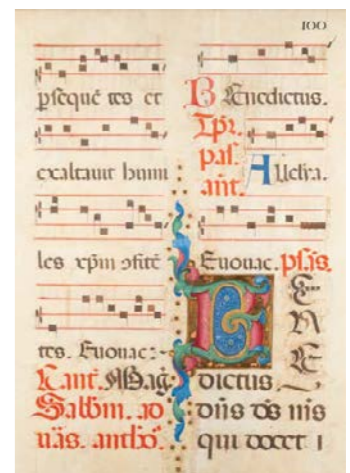 100
psequẽ tes et
exaltauit humi
les xp̃m ɔfitẽ
tes. Euouae:~
Cant. Mag.
Sabb̃m. ad
uãs.
BEnedictus.
Tp̃r.
pas.
añt. Allel̃a.
Euouae. ps̃us.
BE
NE
dictus
dñs ds̃ m̃s
qui docet i